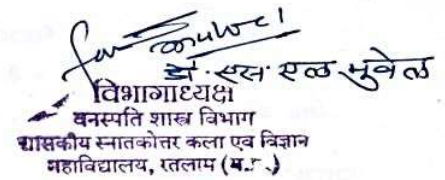 डॉ. एस. एल. मुवेल
विभागाध्यक्ष
वनस्पति शास्त्र विभाग
शासकीय स्नातकोत्तर कला एवं विज्ञान
महाविद्यालय, रतलाम (म.प्र.)